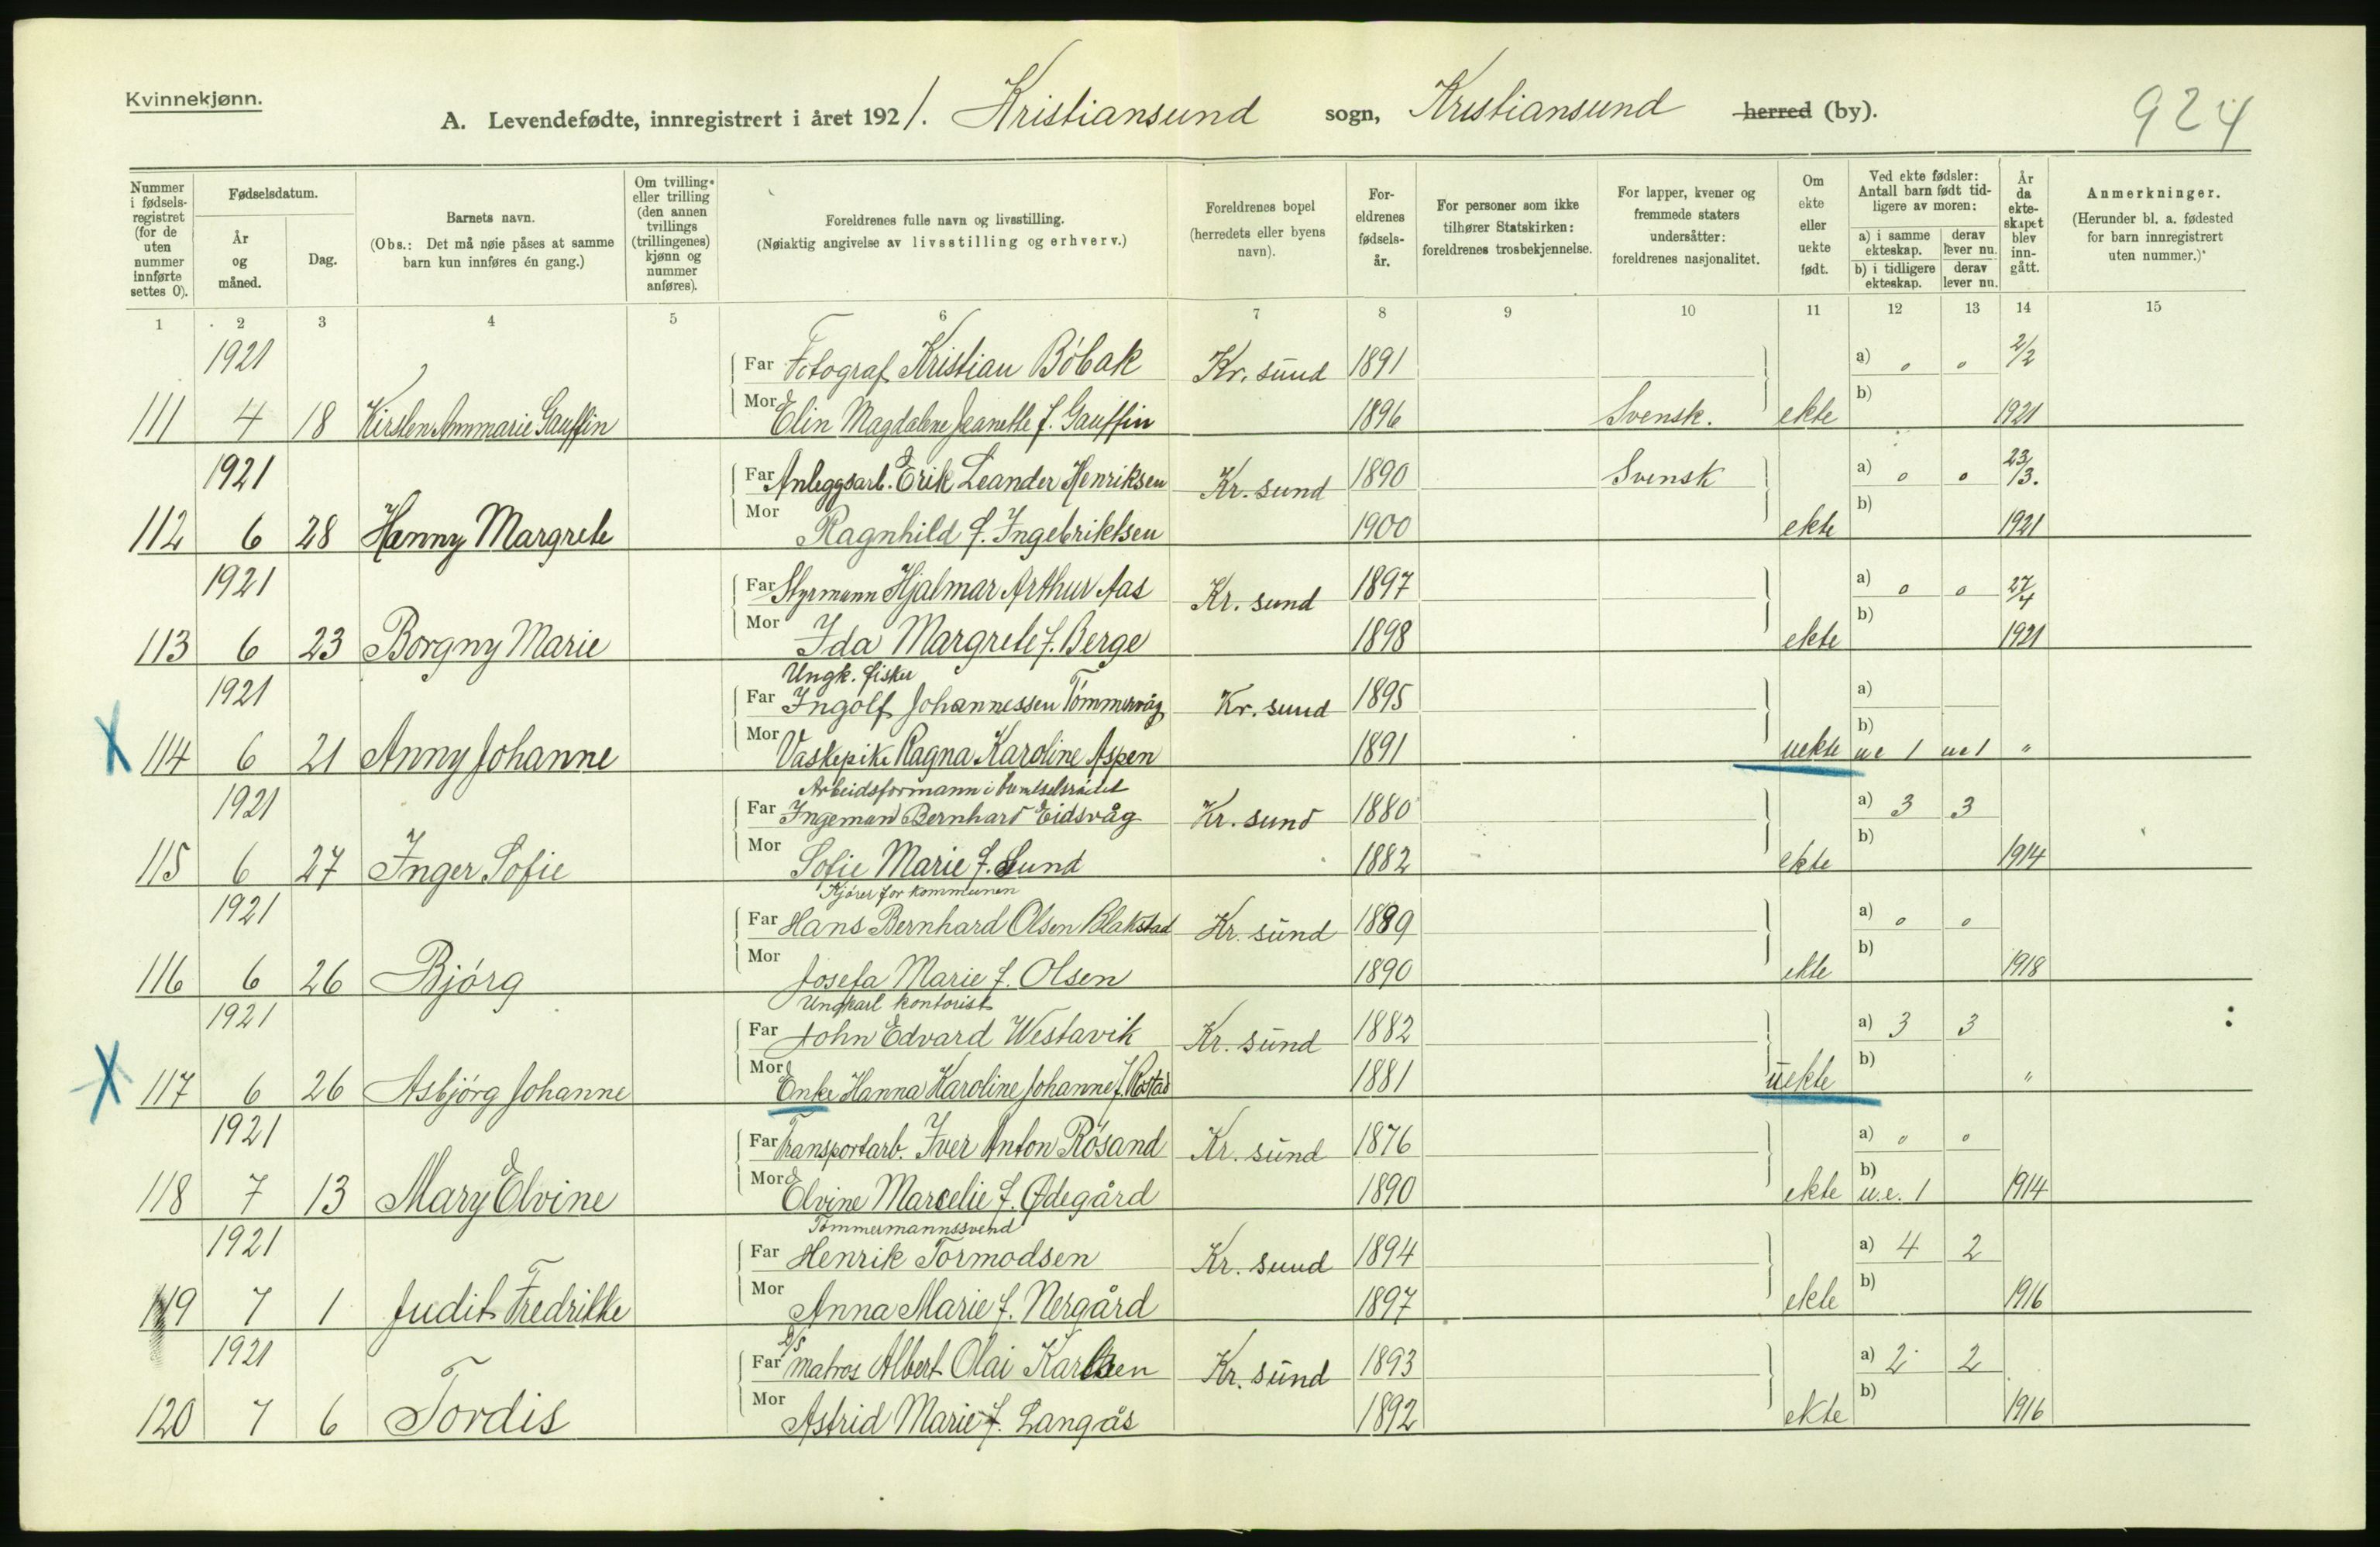 Kvinnekjønn.
A. Levendefødte, innregistrert i året 1921. Kristiansund sogn, Kristiansund herred (by).
924
Nummer i fødselsregistret (for de uten nummer innførte settes 0).
Fødselsdatum.
År og måned.
Dag.
Barnets navn.
(Obs.: Det må nøie påses at samme barn kun innføres én gang.)
Om tvilling- eller trilling (den annen tvillings (trillingenes) kjønn og nummer anføres).
Foreldrenes fulle navn og livsstilling.
(Nøiaktig angivelse av livsstilling og erhverv.)
Foreldrenes bopel (herredets eller byens navn).
Foreldrenes fødselsår.
For personer som ikke tilhører Statskirken: foreldrenes trosbekjennelse.
For lapper, kvener og fremmede staters undersåtter: foreldrenes nasjonalitet.
Om ekte eller uekte født.
Ved ekte fødsler: Antall barn født tidligere av moren:
a) i samme ekteskap. derav lever nu.
b) i tidligere ekteskap. derav lever nu.
År da ekteskapet blev inngått.
Anmerkninger.
(Herunder bl. a. fødested for barn innregistrert uten nummer.)
1 2 3 4 5 6 7 8 9 10 11 12 13 14 15
1921 Far Fotograf Kristian Böbak Kr. sund 1891 a) 0 0 2/2
111 4 18 Kirsten Annmarie Gauffin Mor Elin Magdalene Jeanette f. Gauffin 1896 Svensk. ekte b) 1921
1921 Far Anleggsarb. Erik Leander Henriksen Kr. sund 1890 Svensk a) 0 0 23/3.
112 6 28 Hanny Margrete Mor Ragnhild f. Ingebriktsen 1900 ekte b) 1921
1921 Far Styrmann Hjalmar Arthur Aas Kr. sund 1897 a) 0 0 27/4
113 6 23 Borgny Marie Mor Ida Margrete f. Berge 1898 ekte b) 1921
Ungk. fisker
1921 Far Ingolf Johannessen Tömmervåg Kr. sund 1895 a)
X 114 6 21 Anny Johanne Mor Vaskepike Ragna Karoline Aspen 1891 uekte b) ue 1 ue 1 "
Arbeidsformann i
1921 Far Ingeman Bernhard Eidsvåg Kr. sund 1880 a) 3 3
115 6 27 Inger Sofie Mor Sofie Marie f. Lund 1882 ekte b) 1914
Kjörer for kommunen
1921 Far Hans Bernhard Olsen Blakstad Kr. sund 1889 a) 0 0
116 6 26 Bjórg Mor Josefa Marie f. Olsen 1890 ekte b) 1918
Ungkarl kontorist
1921 Far John Edvard Westavik Kr. sund 1882 a) 3 3
X 117 6 26 Asbjórg Johanne Mor Enke Hanna Karoline Johanne f. Rostad 1881 uekte b) "
1921 Far Transportarb. Iver Anton Rósand Kr. sund 1876 a) 0 0
118 7 13 Mary Elvine Mor Elvine Marcelie f. Ødegård 1890 ekte b) u.e. 1 1914
Tömmermannssvend
1921 Far Henrik Tormodsen Kr. sund 1894 a) 4 2
119 7 1 Judit Fredrikke Mor Anna Marie f. Nergård 1897 ekte b) 1916
D/S
1921 Far matros Albert Olai Karlsen Kr. sund 1893 a) 2 2
120 7 6 Tordis Mor Astrid Marie f. Langås 1892 ekte b) 1916